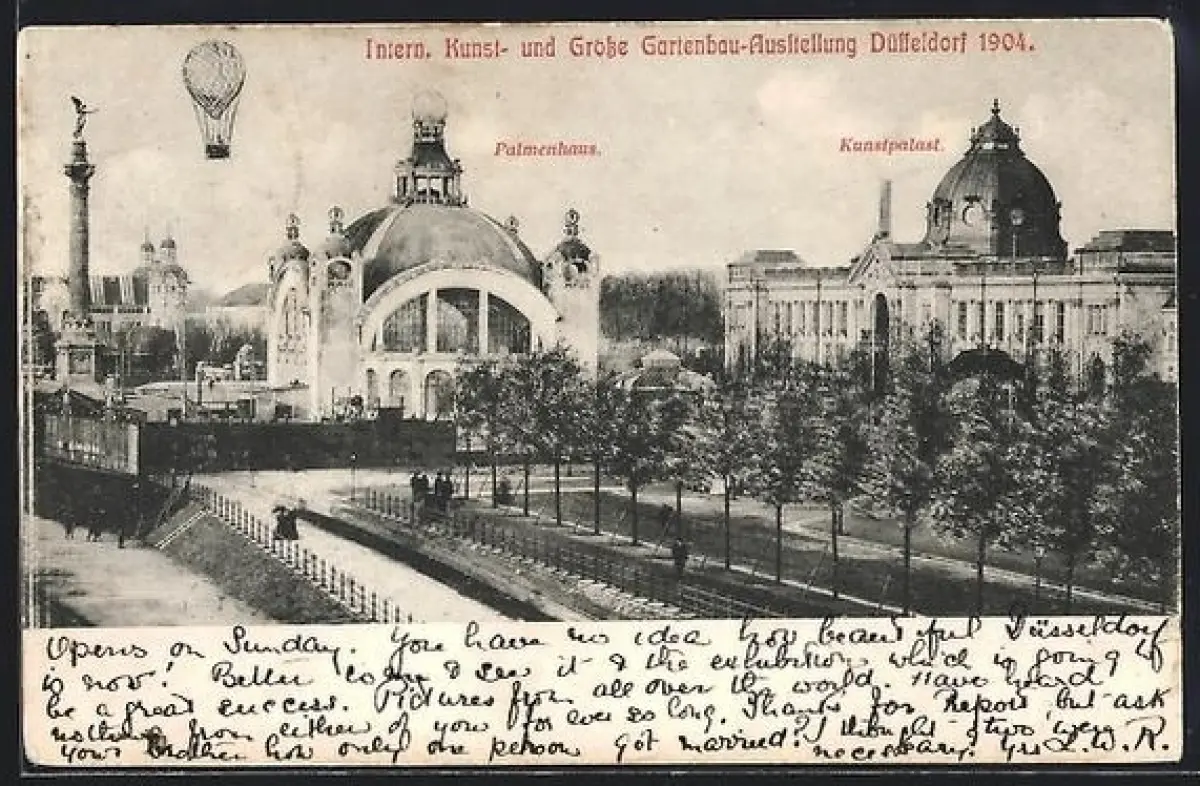 Intern. Kunst- und Große Gartenbau-Ausstellung Düsseldorf 1904.
Palmenhaus.
Kunstpalast.
Opens on Sunday. You have no idea how beautiful Düsseldorf
is now! Better come & see it & the exhibition which is going to
be a great success. Pictures from all over the world. Have heard
nothing from either of you for ever so long. Thanks for Report, but ask
your brother how only one person got married? I thought two were
necessary. Yrs L. W. R.